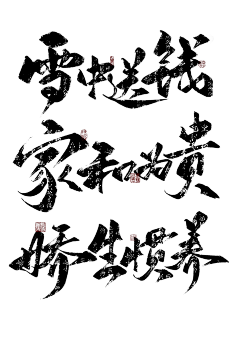 雪中送钱
家和为贵
娇生惯养